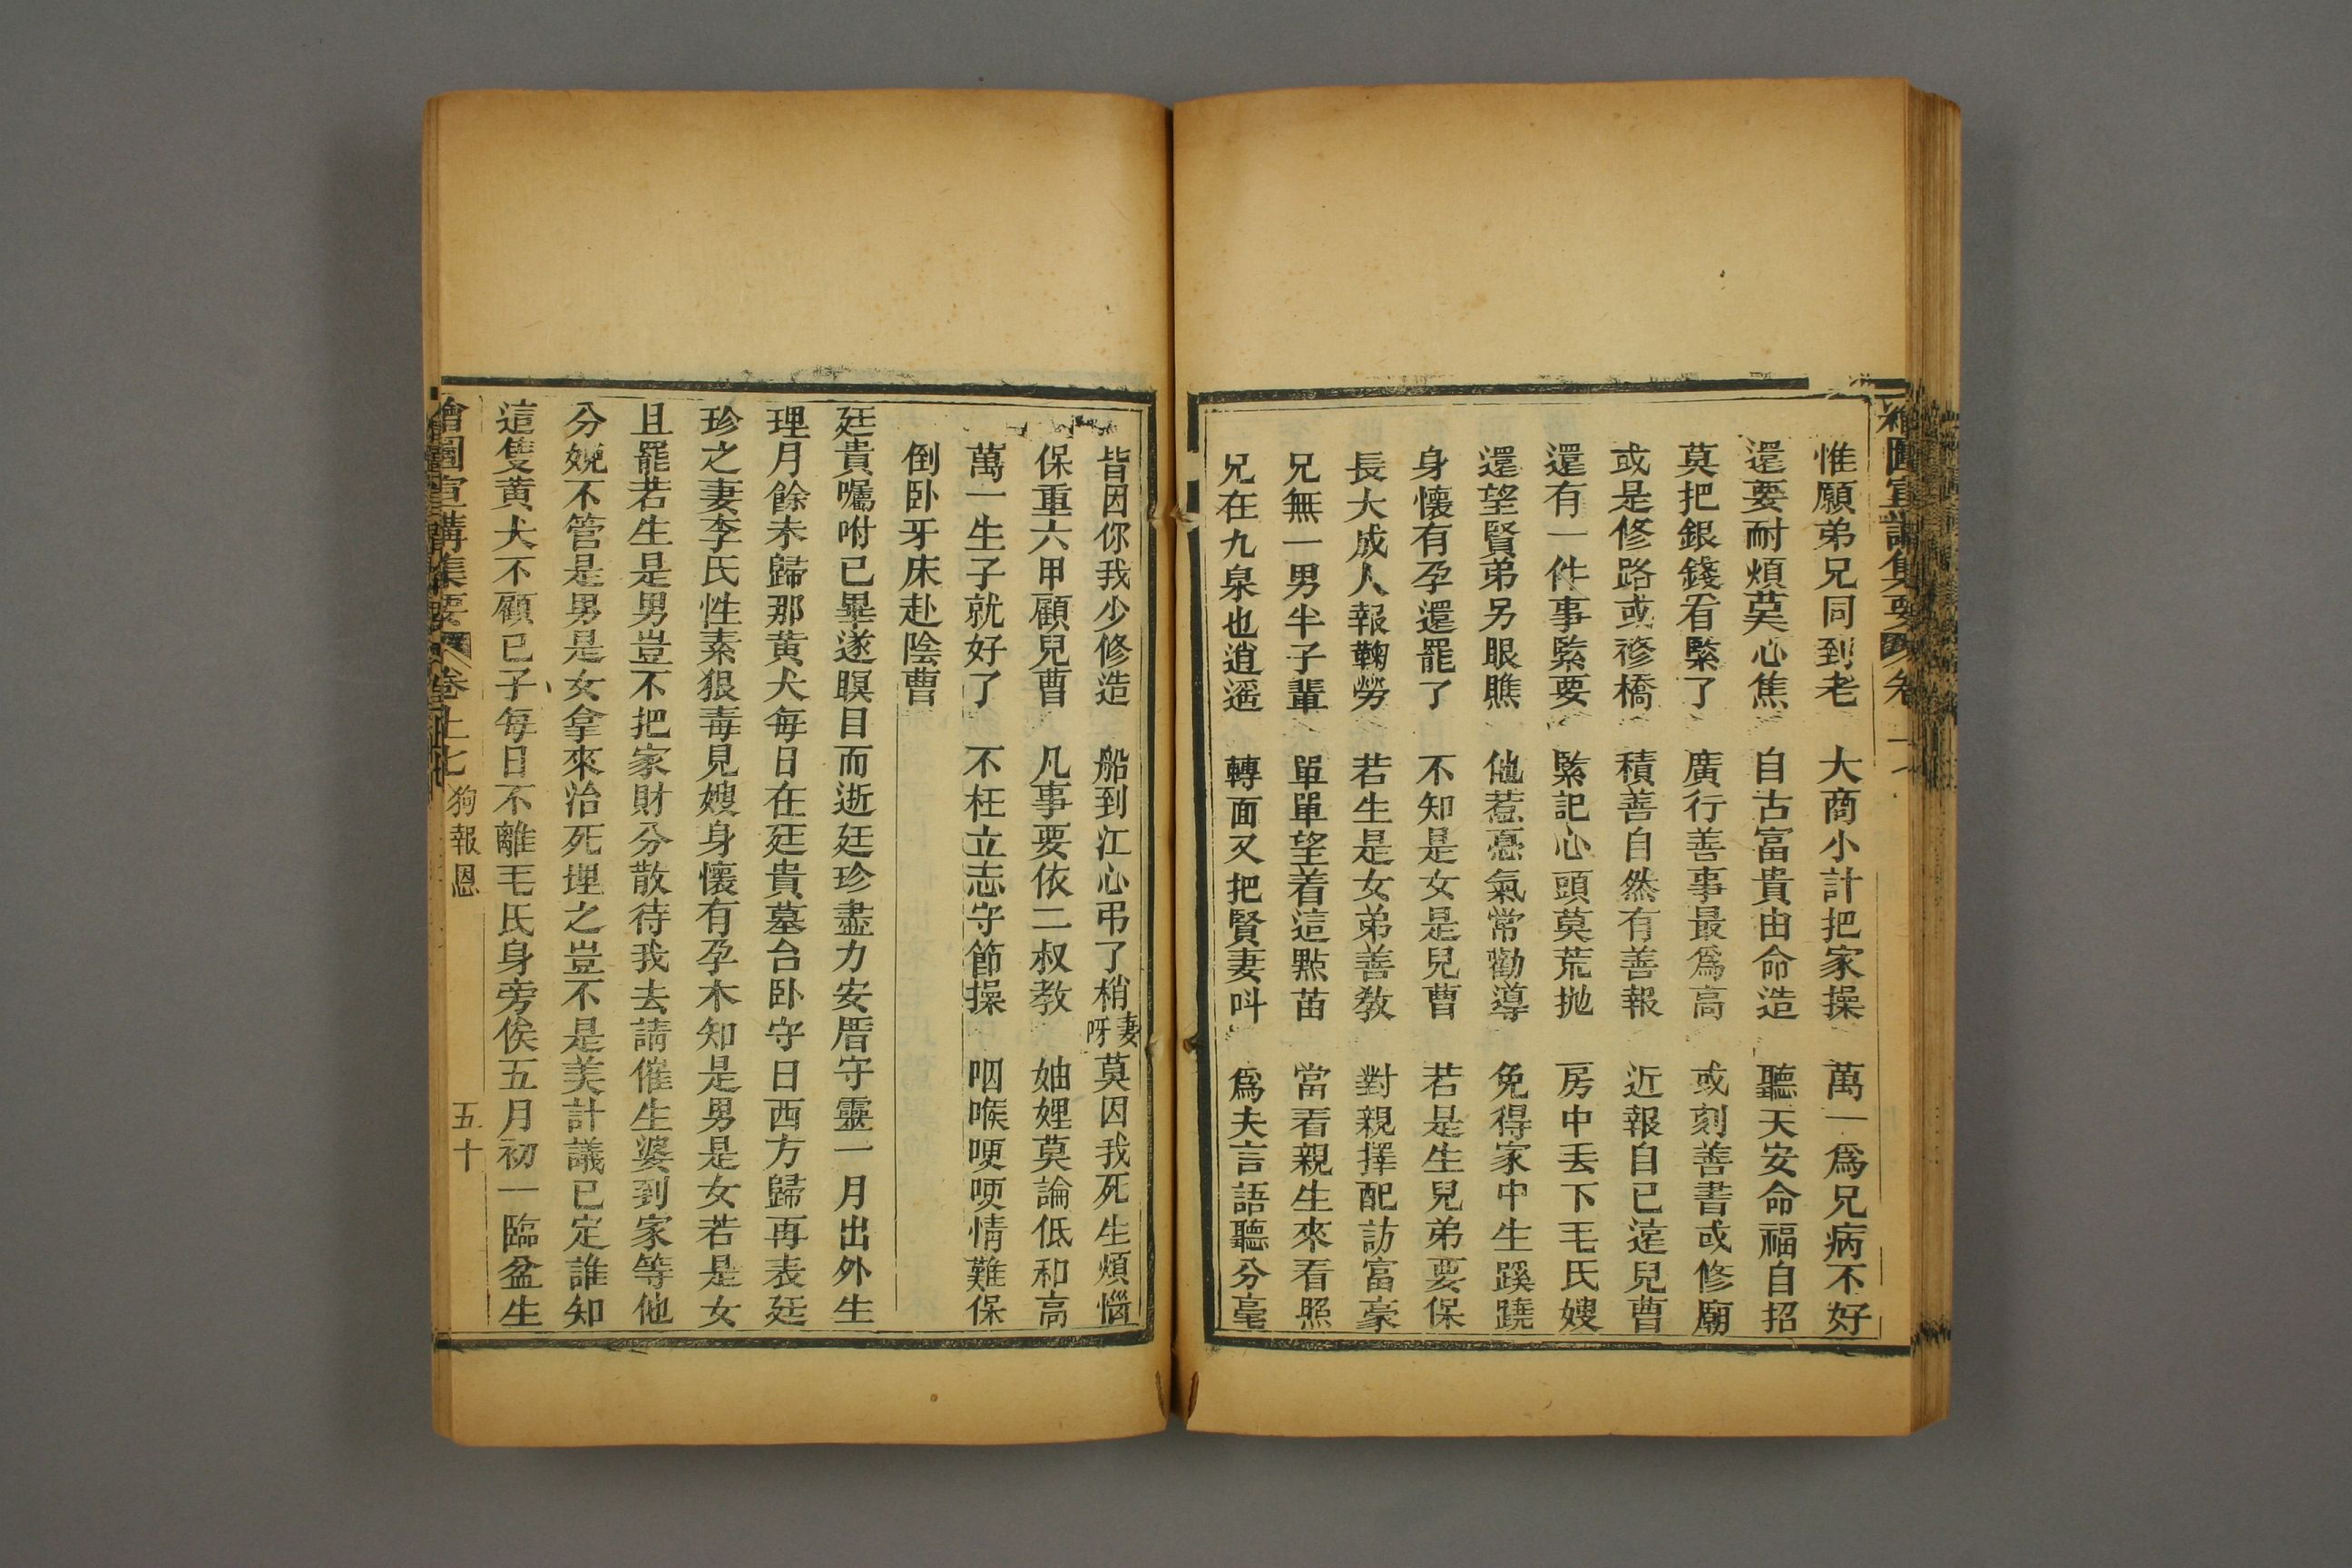 繪圖宣講集要 卷
惟願弟兄同到老 大商小計把家操 萬一爲兄病不好
還要耐煩莫心焦 自古富貴由命造 聽天安命福自招
莫把銀錢看緊了 廣行善事最爲高 或刻善書或修廟
或是修路或修橋 積善自然有善報 近報自已遠兒曹
還有一件事緊要 緊記心頭莫荒拋 房中丟下毛氏嫂
還望賢弟另眼瞧 他惹憂氣常勸導 免得家中生蹊蹺
身懷有孕還罷了 不知是女是兒曹 若是生兒弟要保
長大成人報鞠勞 若生是女弟善教 對親擇配訪富豪
兄無一男半子輩 單單望着這點苗 當看親生來看照
兄在九泉也逍遥 轉面又把賢妻呌 爲夫言語聽分毫
皆因你我少修造 船到江心弔了梢 妻呀莫因我死生煩惱
保重六甲顧兒曹 凡事要依二叔教 妯娌莫論低和高
萬一生子就好了 不枉立志守節操 咽喉哽哽情難保
倒卧牙床赴陰曹
廷貴囑咐已畢遂瞑目而逝廷珍盡力安厝守靈一月出外生
理月餘未歸那黄犬每日在廷貴墓台卧守日西方歸再表廷
珍之妻李氏性素狠毒見嫂身懷有孕木知是男是女若是女
且罷若生是男豈不把家財分散待我去請催生婆到家等他
分娩不管是男是女拿來治死埋之豈不是美計議已定誰知
這隻黄犬不顧已子每日不離毛氏身旁俟五月初一臨盆生
繪圖宣講集要 卷上七 狗報恩 五十